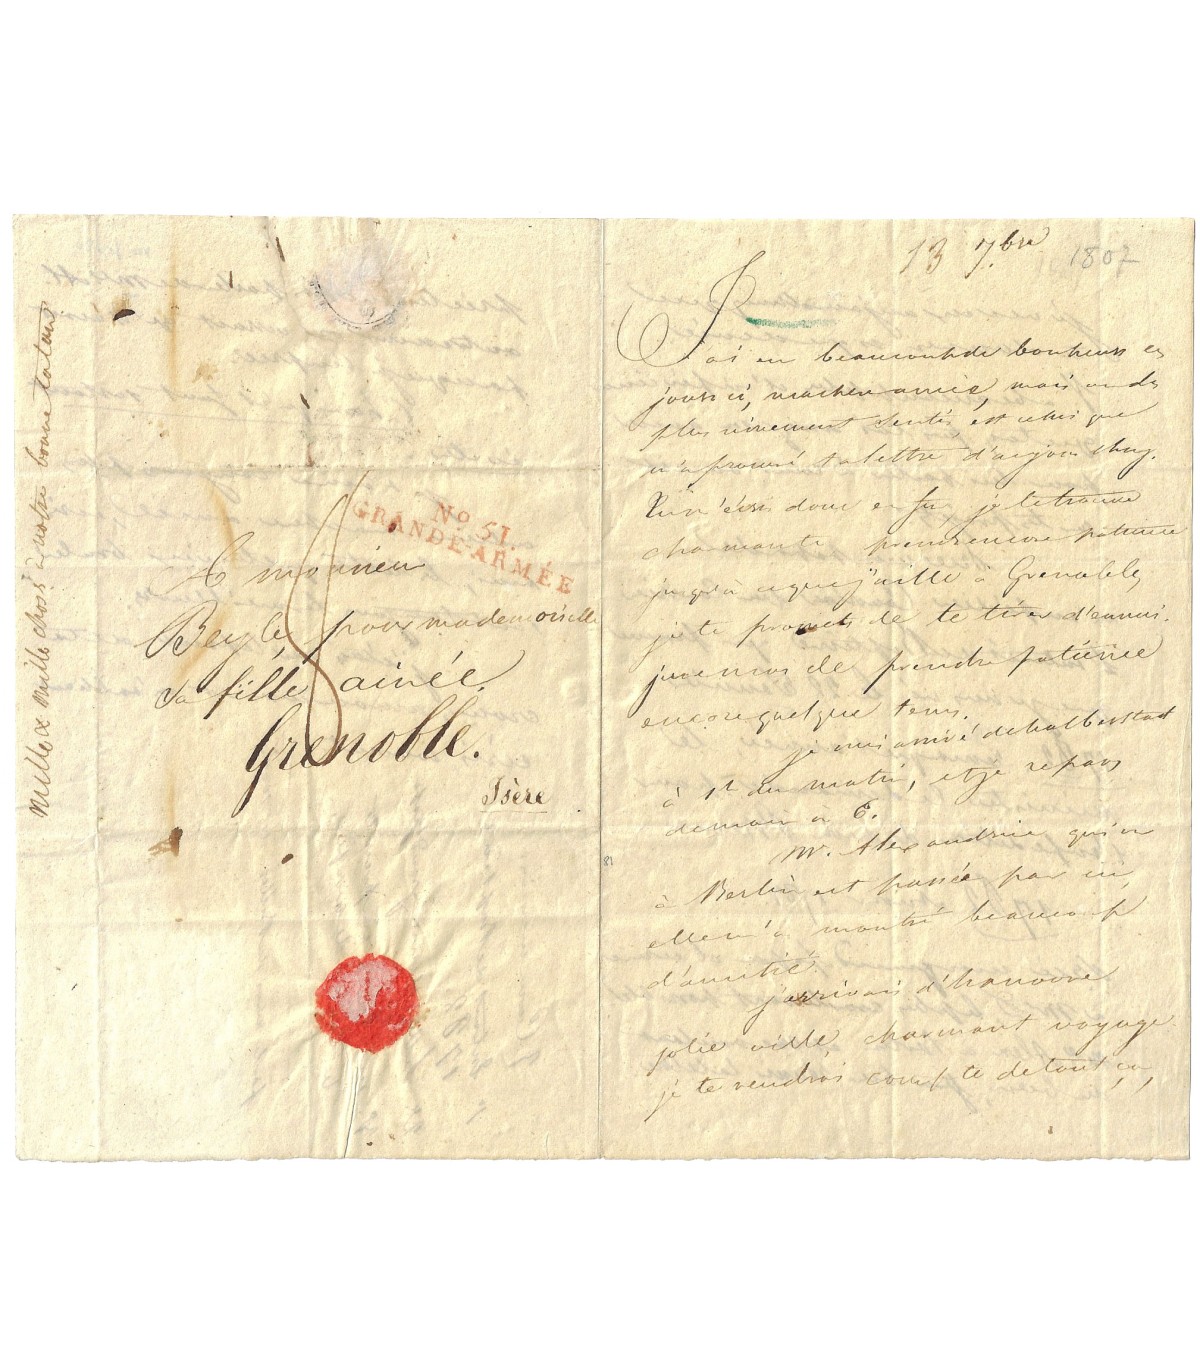 Mille et mille choses à notre bonne tatan
No 51.
GRANDE-ARMÉE
A monsieur
Beyle, pour mademoiselle
sa fille ainée.
Grenoble.
Isère
13 7.bre 1807
J'ai eu beaucoup de bonheurs ces
jours ci, ma chère amie, mais un des
plus vivement sentis est celui que
m'a procuré ta lettre d'aujourd'huy.
donc enfin, je te trouve
charmante prends encore patience
jusqu'à ce que j'aille à Grenoble,
je te promets de te tirer d'ennui.
de prendre patience
encore quelque tems.
je suis arrivé de halberstadt
à 1h du matin, et je repars
demain à 6.
Mr. Alexandrine qui va
à Berlin est passée par ici,
elle m'a montré beaucoup
d'amitié.
j'arrivais d'hanovre
jolie ville, charmant voyage
je te rendrai compte de tout ça,
81